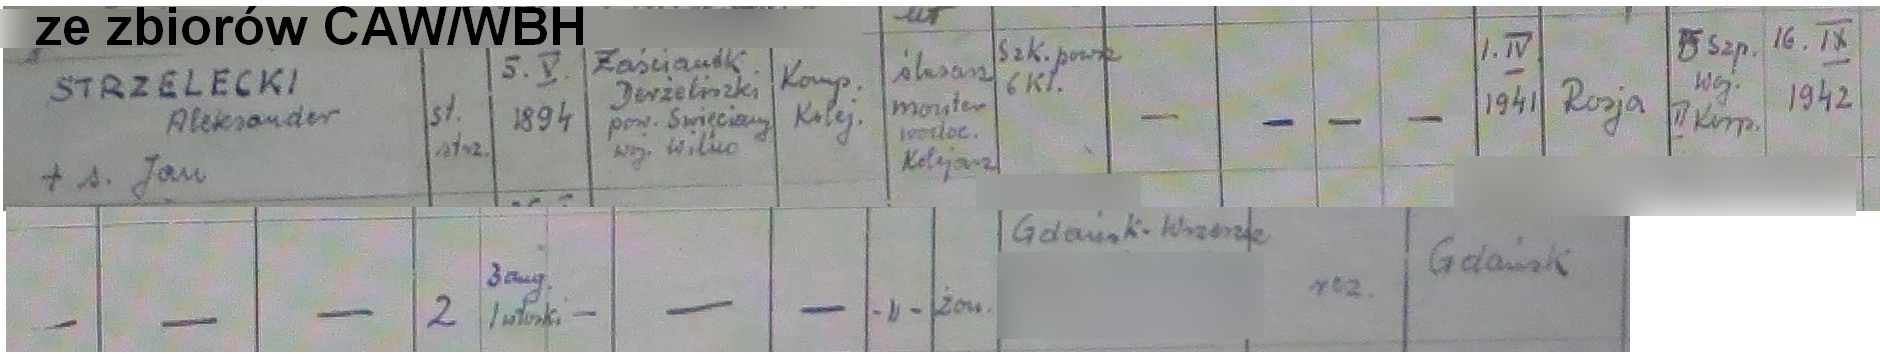 ze zbiorów CAW/WBH
STRZELECKI
Aleksander
+ s. Jan
st.
strz.
5. V.
1894
Zaściank.
Derżeliszki
pow. Święciany
woj. Wilno
Komp.
Kolej.
ślusarz
monter
wodoc.
Kolejarz
Szk. powsz
6 Kl.
—
—
—
—
1. IV
1941
Rosja
Szp.
woj.
II Korp.
16. IX
1942
—
—
—
2
3 ang.
1 włoski
—
—
—
- " -
żon.
Gdańsk-Wrzeszcz
rez.
Gdańsk